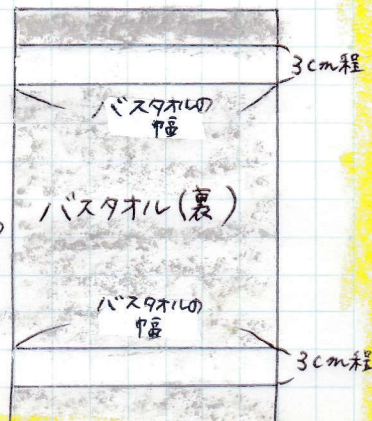 3cm程
バスタオルの
幅
バスタオル(裏)
バスタオルの
幅
3cm程